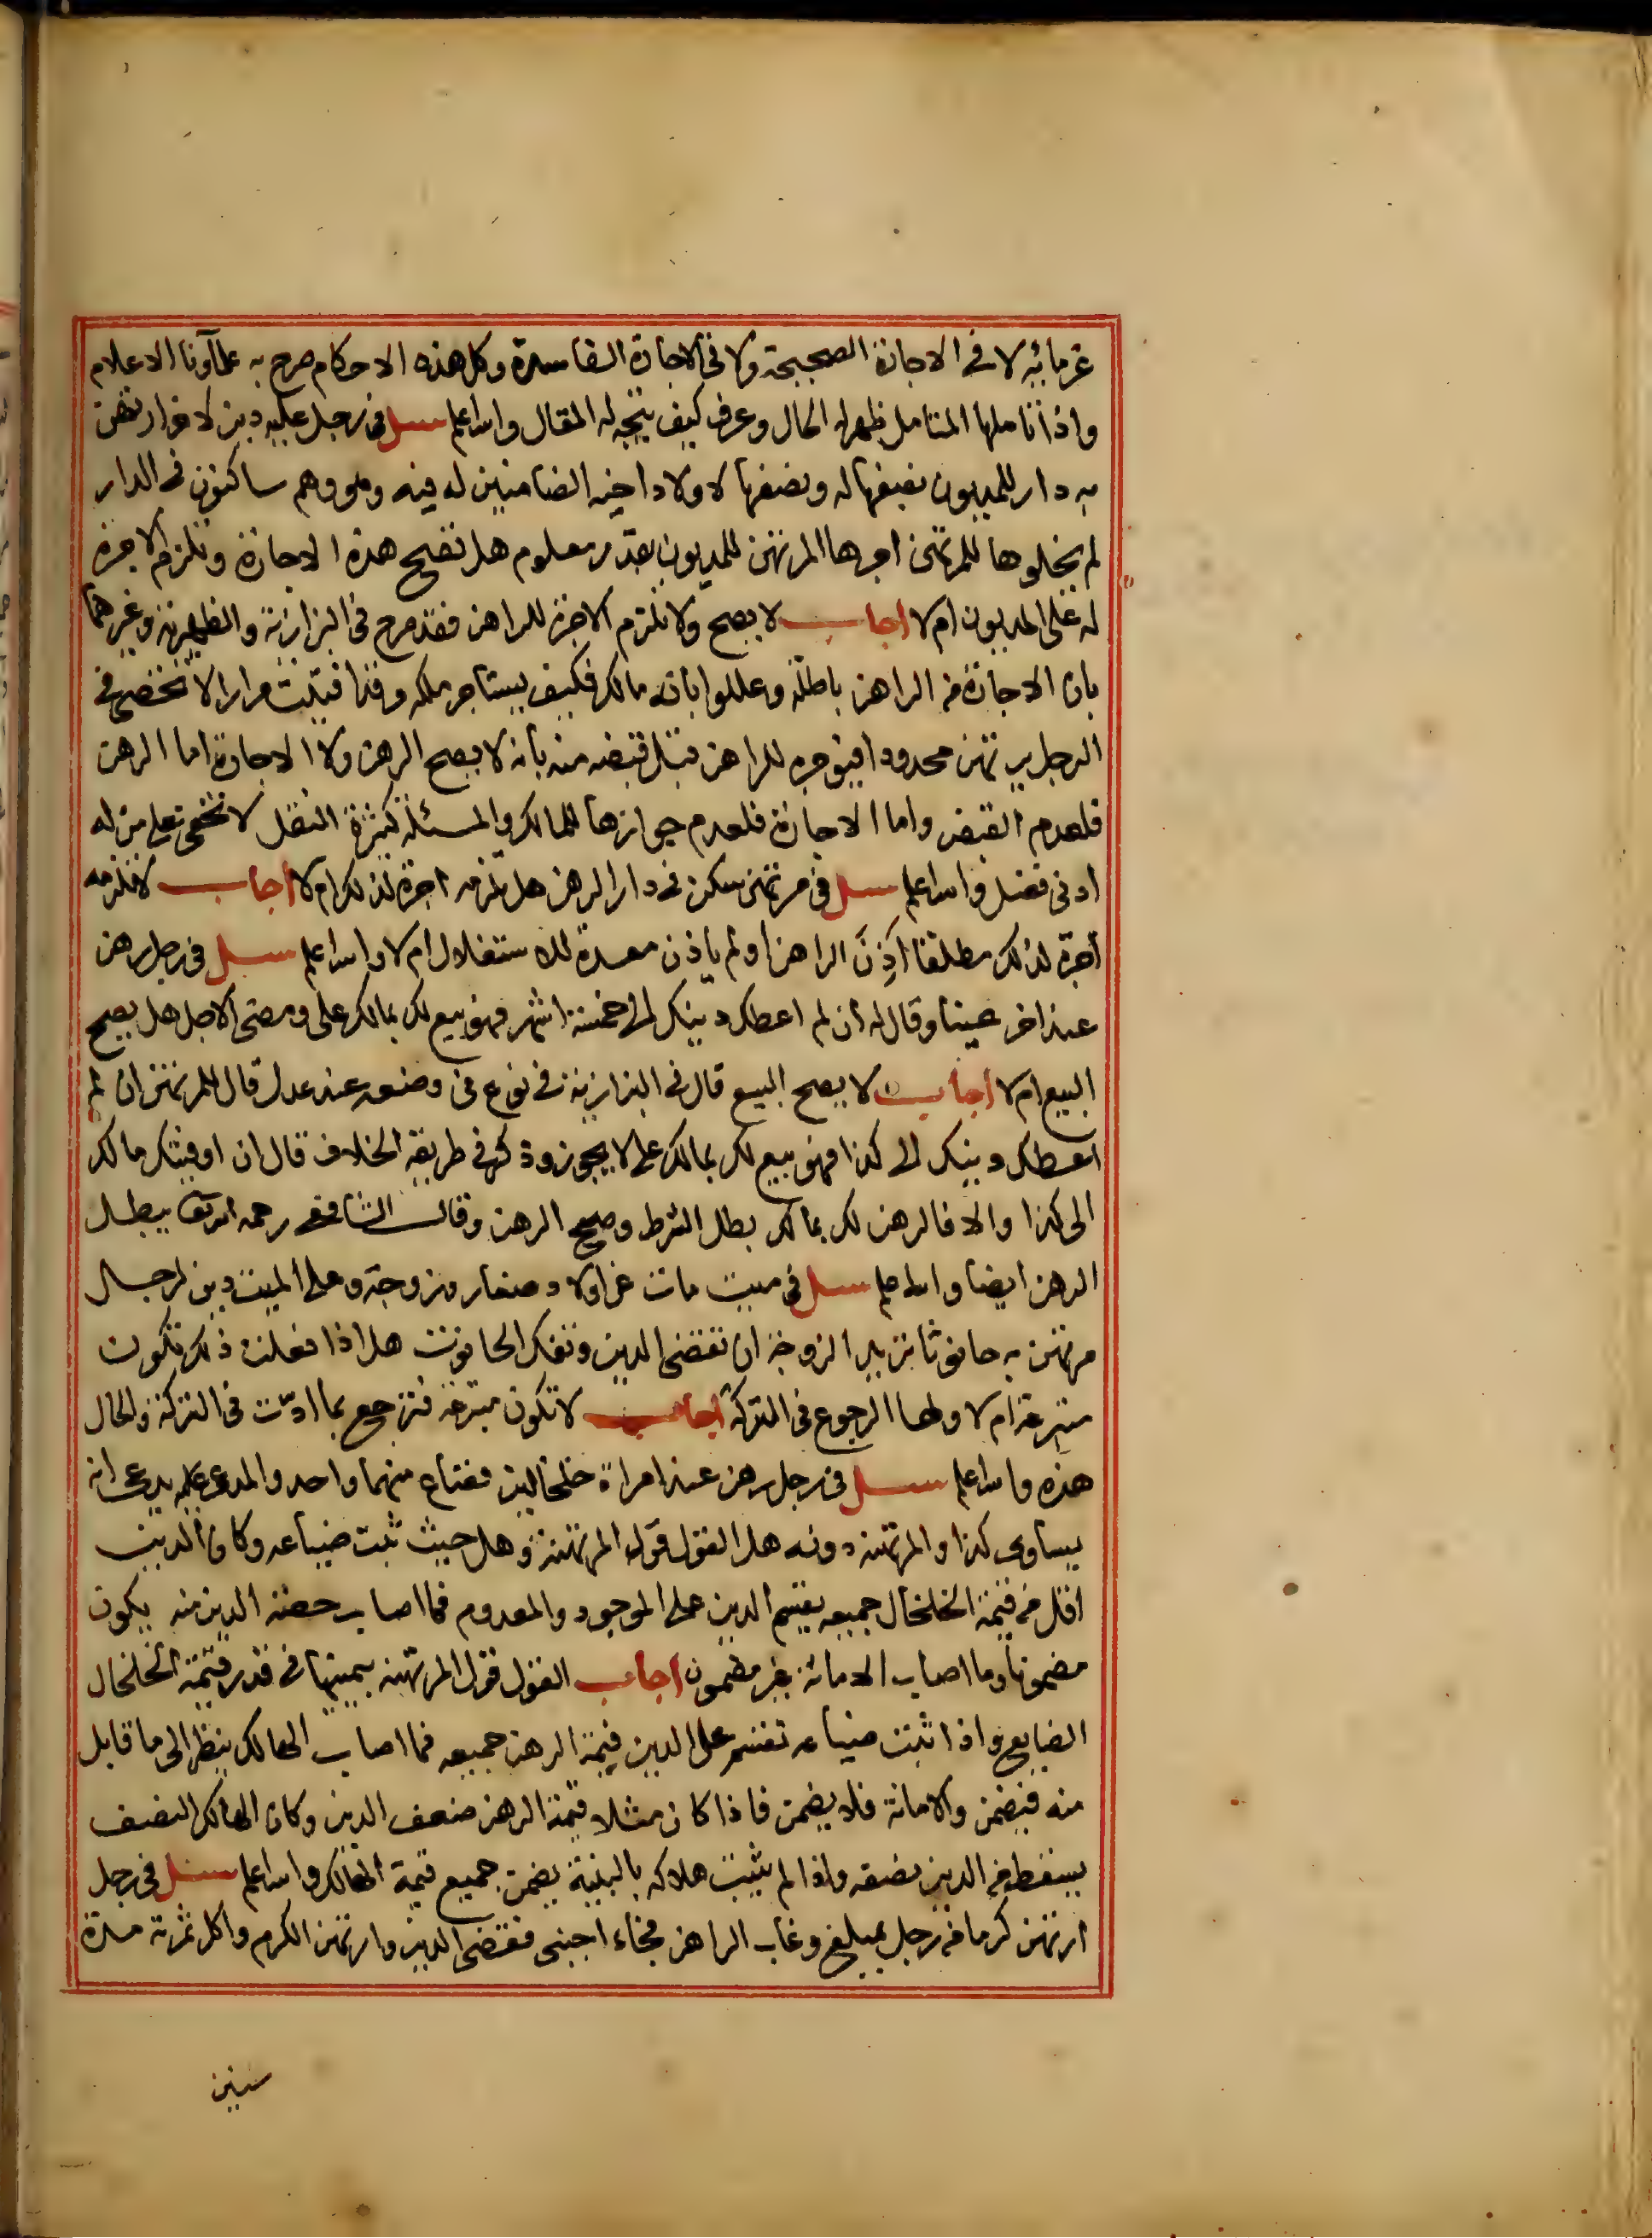 غرمائه لا في الاجارة الصحيحة ولا في الاجارة الفاسدة وكل هذه الاحكام صرح به علماؤنا الاعلام
واذا تاملها المتامل ظهر له الحال وعرف كيف يتجه له المقال والله اعلم سئل في رجل عليه دين لاخر ارتهن
به دار للمديون نصفها له ونصفها لاولاد اخيه الضامنين له فيه وهو وهم ساكنون في الدار
لم يخلوها للمرتهن اجرها المرتهن للمديون بقدر معلوم هل تصح هذه الاجارة وتلزم الاجرة
له على المديون ام لا اجاب لا يصح ولا تلزم الاجرة للراهن فقد صرح في البزازية والظهيرية وغيرهما
بان الاجارة من الراهن باطلة وعللوا بانه مالك فكيف يستاجر ملكه وقد افتيت مرارا لا تحصى في
الرجل يرتهن محدودا فيؤجره للراهن قبل قبضه منه بانه لا يصح الرهن ولا الاجارة اما الرهن
فلعدم القبض واما الاجارة فلعدم جوازها للمالك والمسئلة كثيرة النقل لا تخفى على من له
ادنى فضل والله اعلم سئل في مرتهن سكن في دار الرهن هل تلزمه اجرة لذلك ام لا اجاب لا تلزمه
اجرة لذلك مطلقا اَذِنَ الراهن او لم ياذن معدة للاستغلال ام لا والله اعلم سئل في رجل رهن
عند اخر عينا وقال له ان لم اعطك دينك الى خمسة اشهر فهو بيع لك بمالك على ومضى الاجل هل يصح
البيع ام لا اجاب لا يصح البيع قال في البزازية في نوع في وضعه عند عدل قال للمرتهن ان لم
اعطك دينك الى كذا فهو بيع لك بمالك على لا يجوز وذكر في طريقة الخلاف قال ان اوفيتك مالك
الى كذا والا فالرهن لك بمالك بطل الشرط وصح الرهن وقال الشافعي رحمه الله تعالى يبطل
الرهن ايضا والله اعلم سئل في ميت مات عن اولاد صغار وزوجة وعلى الميت دين لرجال
مرتهن به حانوتا تريد الزوجة ان تقضي الدين وتفك الحانوت هل اذا فعلت ذلك تكون
متبرعة ام لا ولها الرجوع في التركة اجاب لا تكون متبرعة فترجع بما ادّت في التركة والحال
هذه والله اعلم سئل في رجل رهن عند امراة خلخالين فضاع منهما واحد والمدعى عليه يدعى انه
يساوى كذا والمرتهنة دونه هل القول قول المرتهنة وهل حيث ثبت ضياعه وكان الدين
اقل من قيمة الخلخال جميعه يقسم الدين على الموجود والمعدوم فما اصاب حصة الدين منه يكون
مضمونا وما اصاب الامانة غير مضمون اجاب القول قول المرتهنة بيمينها في قدر قيمة الخلخال
الضايع واذا ثبت ضياعه تقسم على الدين قيمة الرهن جميعه فما اصاب الهالك ينظر الى ما قابل
منه فيضمن والامانة فلا يضمن فاذا كان مثلا قيمة الرهن ضعف الدين وكان الهالك النصف
يسقط من الدين نصفه واذا لم يثبت هلاكه بالبينة يضمن جميع قيمة الهالك والله اعلم سئل في رجل
ارتهن كرما من رجل بمبلغ وغاب الراهن فجاء اجنبى فقضى الدين وارتهن الكرم واكل ثمرته مدة
سنين